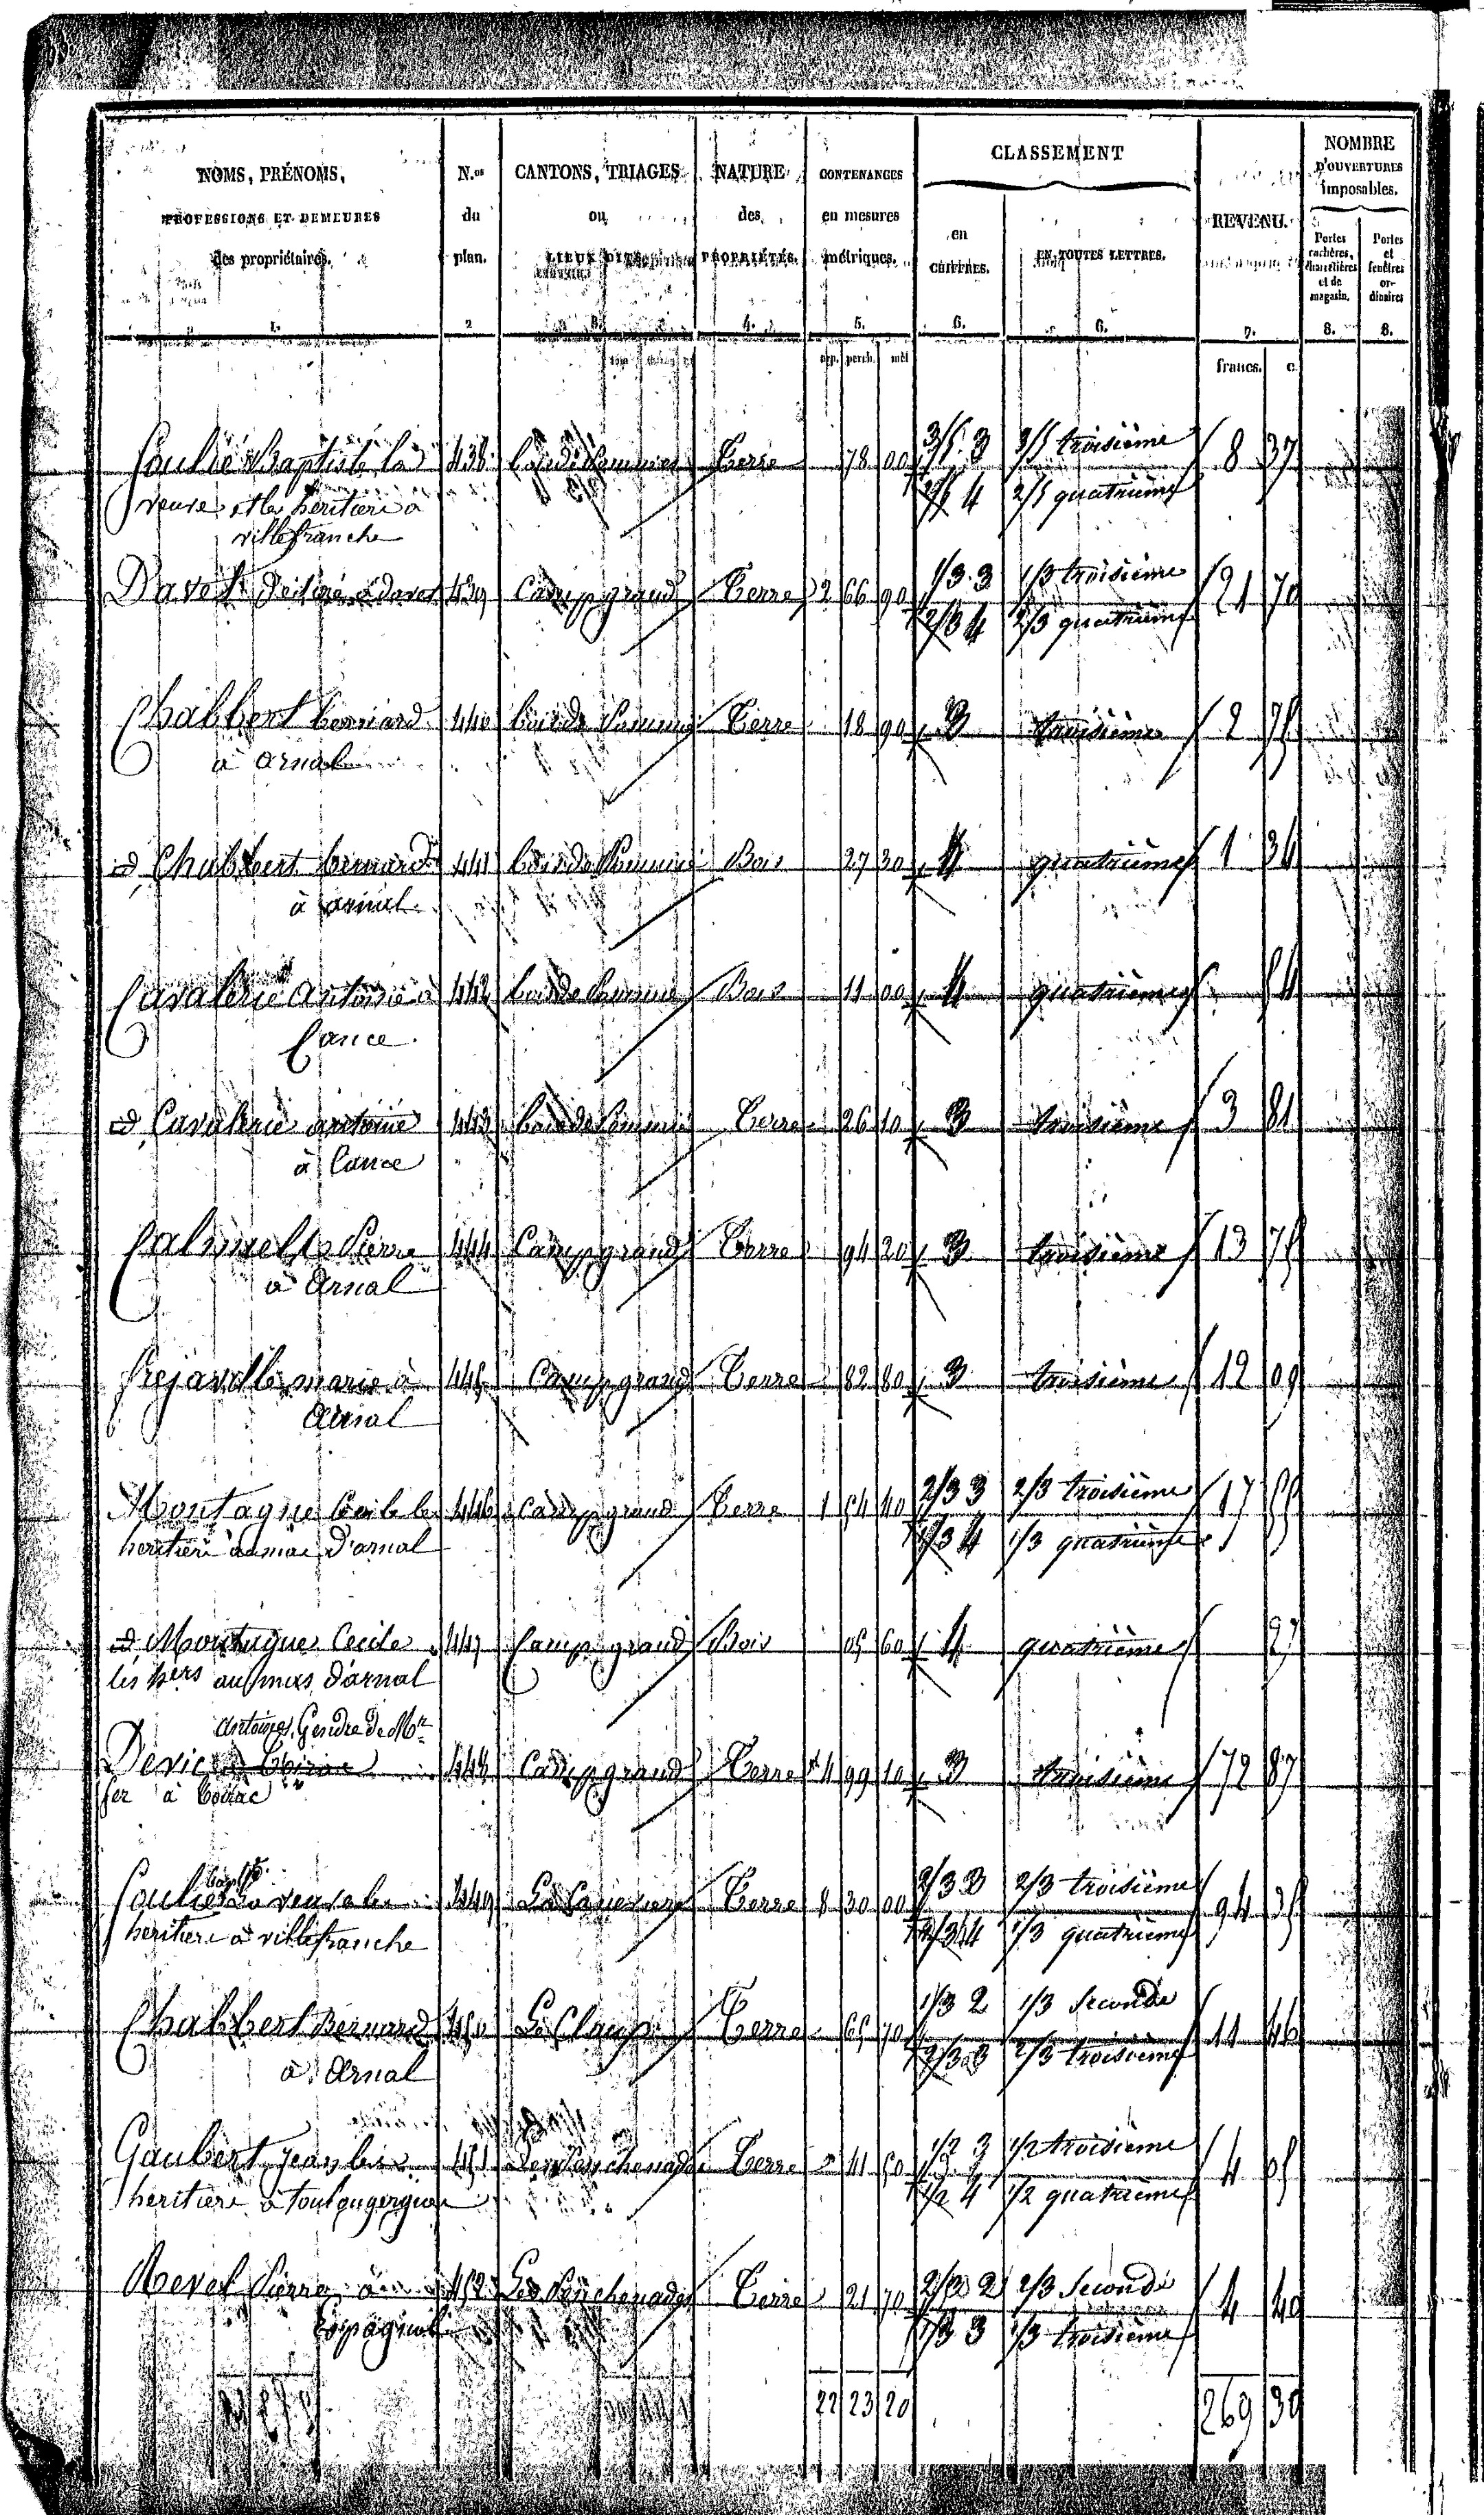 NOMS, PRÉNOMS,
PROFESSIONS ET DEMEURES
des propriétaires.
1.
N.os
du
plan.
2
CANTONS, TRIAGES
ou
LIEUX DITS
3.
NATURE
des
PROPRIÉTÉS.
4.
CONTENANCES
en mesures
métriques.
5.
CLASSEMENT
en
CHIFFRES.
6.
EN TOUTES LETTRES.
6.
REVENU.
7.
NOMBRE
D'OUVERTURES
imposables.
Portes
cochères,
charretières
et de
magasin.
8.
Portes
et
fenêtres
or-
dinaires
8.
arp. perch. mèt francs. c.
Soulié Baptiste la 438 Terre 78 00 3/5 3 3/5 troisième 8 37
veuve et les heritiers à 2/5 4 2/5 quatrième
villefranche
439 Camp grand Terre 2 66 90 1/3 3 1/3 troisième 21 70
2/3 4 2/3 quatrième
Chabbert bernard 440 Terre 18 90 3 troisième 2 75
à arnal
id Chabbert bernard 441 Bois 27 30 4 quatrième 1 34
à arnal
Cavalerie antoine à 442 Bois 11 00 4 quatrième 54
Cance
id Cavalerie antoine 443 Terre 26 10 3 troisième 3 81
à Cance
Calmels Pierre 444 Camp grand Terre 94 20 3 troisième 13 75
à arnal
frejaville marie à 445 Camp grand Terre 82 80 3 troisième 12 09
arnal
Montagne 446 Camp grand Terre 1 54 40 2/3 3 2/3 troisième 17 55
heritiers au mas d'arnal 1/3 4 1/3 quatrième
id Montagne Cecile 447 Camp grand Bois 05 60 4 quatrième 27
les hers au mas d'arnal
antoine, Gendre de Mr
Devic 448 Camp grand Terre 4 99 10 3 troisième 72 87
fer à
Bapte
Soulié la veuve les 449 Terre 8 30 00 2/3 3 2/3 troisième 94 35
heritiers à villefranche 1/3 4 1/3 quatrième
Chabbert Bernard 450 Terre 65 70 1/3 2 1/3 Seconde 11 46
à Arnal 2/3 3 2/3 troisième
Gaubert jean les 451 Terre 41 50 1/2 3 1/2 troisième 4 05
heritiers à toulongergues 1/2 4 1/2 quatrième
Revel Pierre à 452 Terre 21 70 2/3 2 2/3 Seconde 4 40
Espagnol 1/3 3 1/3 troisième
22 23 20 269 30